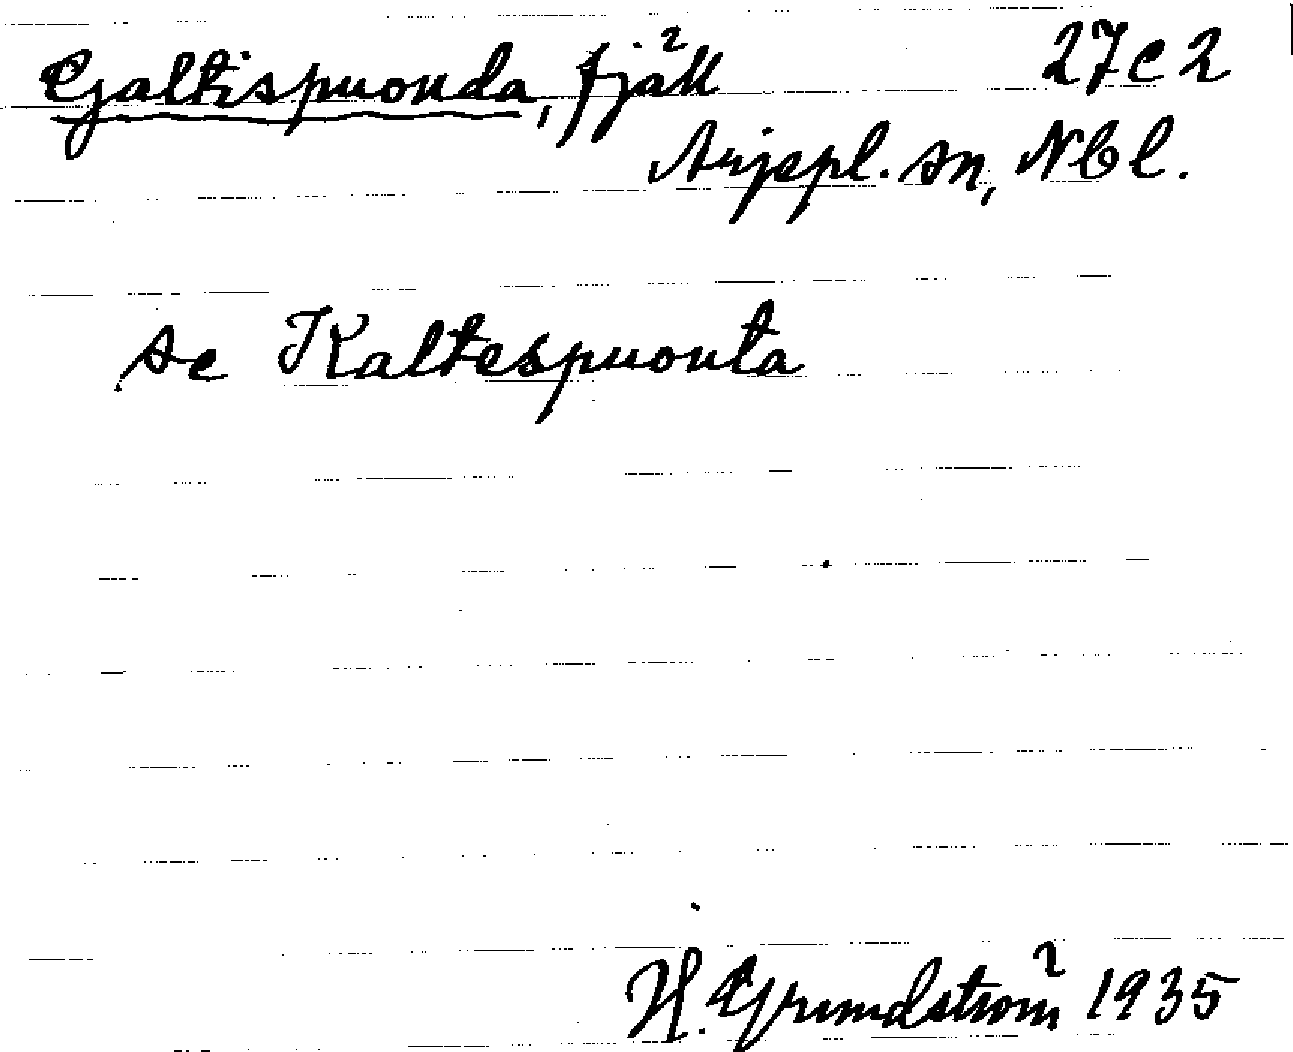 Galtispuonda, fjäll 27e2
Arjepl. sn, Nbl.
se Kaltespuonta
H. Grundström 1935